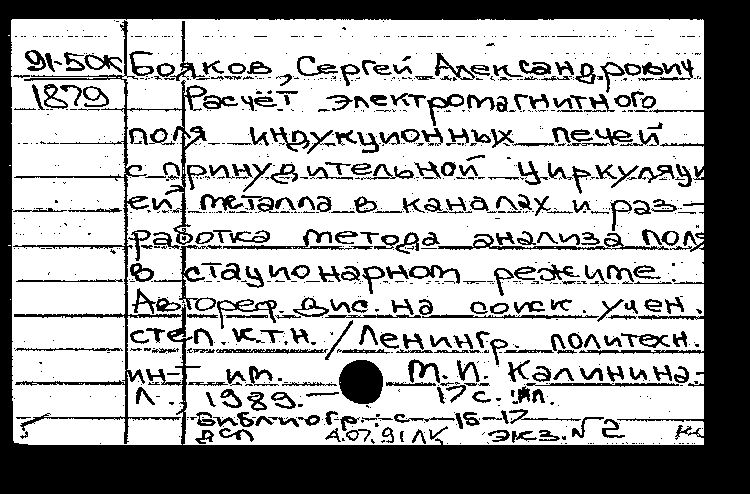 91-50К Бояков, Сергей Александрович
1879 Расчёт электромагнитного
поля индукционных печей
с принудительной циркуляци
ей металла в каналах и раз-
работка метода анализа поля
в стационарном режиме:
Автореф. дис. на соиск. учен.
степ. к.т.н. / Ленингр. политехн.
ин-т им. М.И. Калинина.-
Л., 1989.- 17 с.: ил.
Библиогр.: с. 15-17
ДСП А.07.91 ЛК экз. № 2